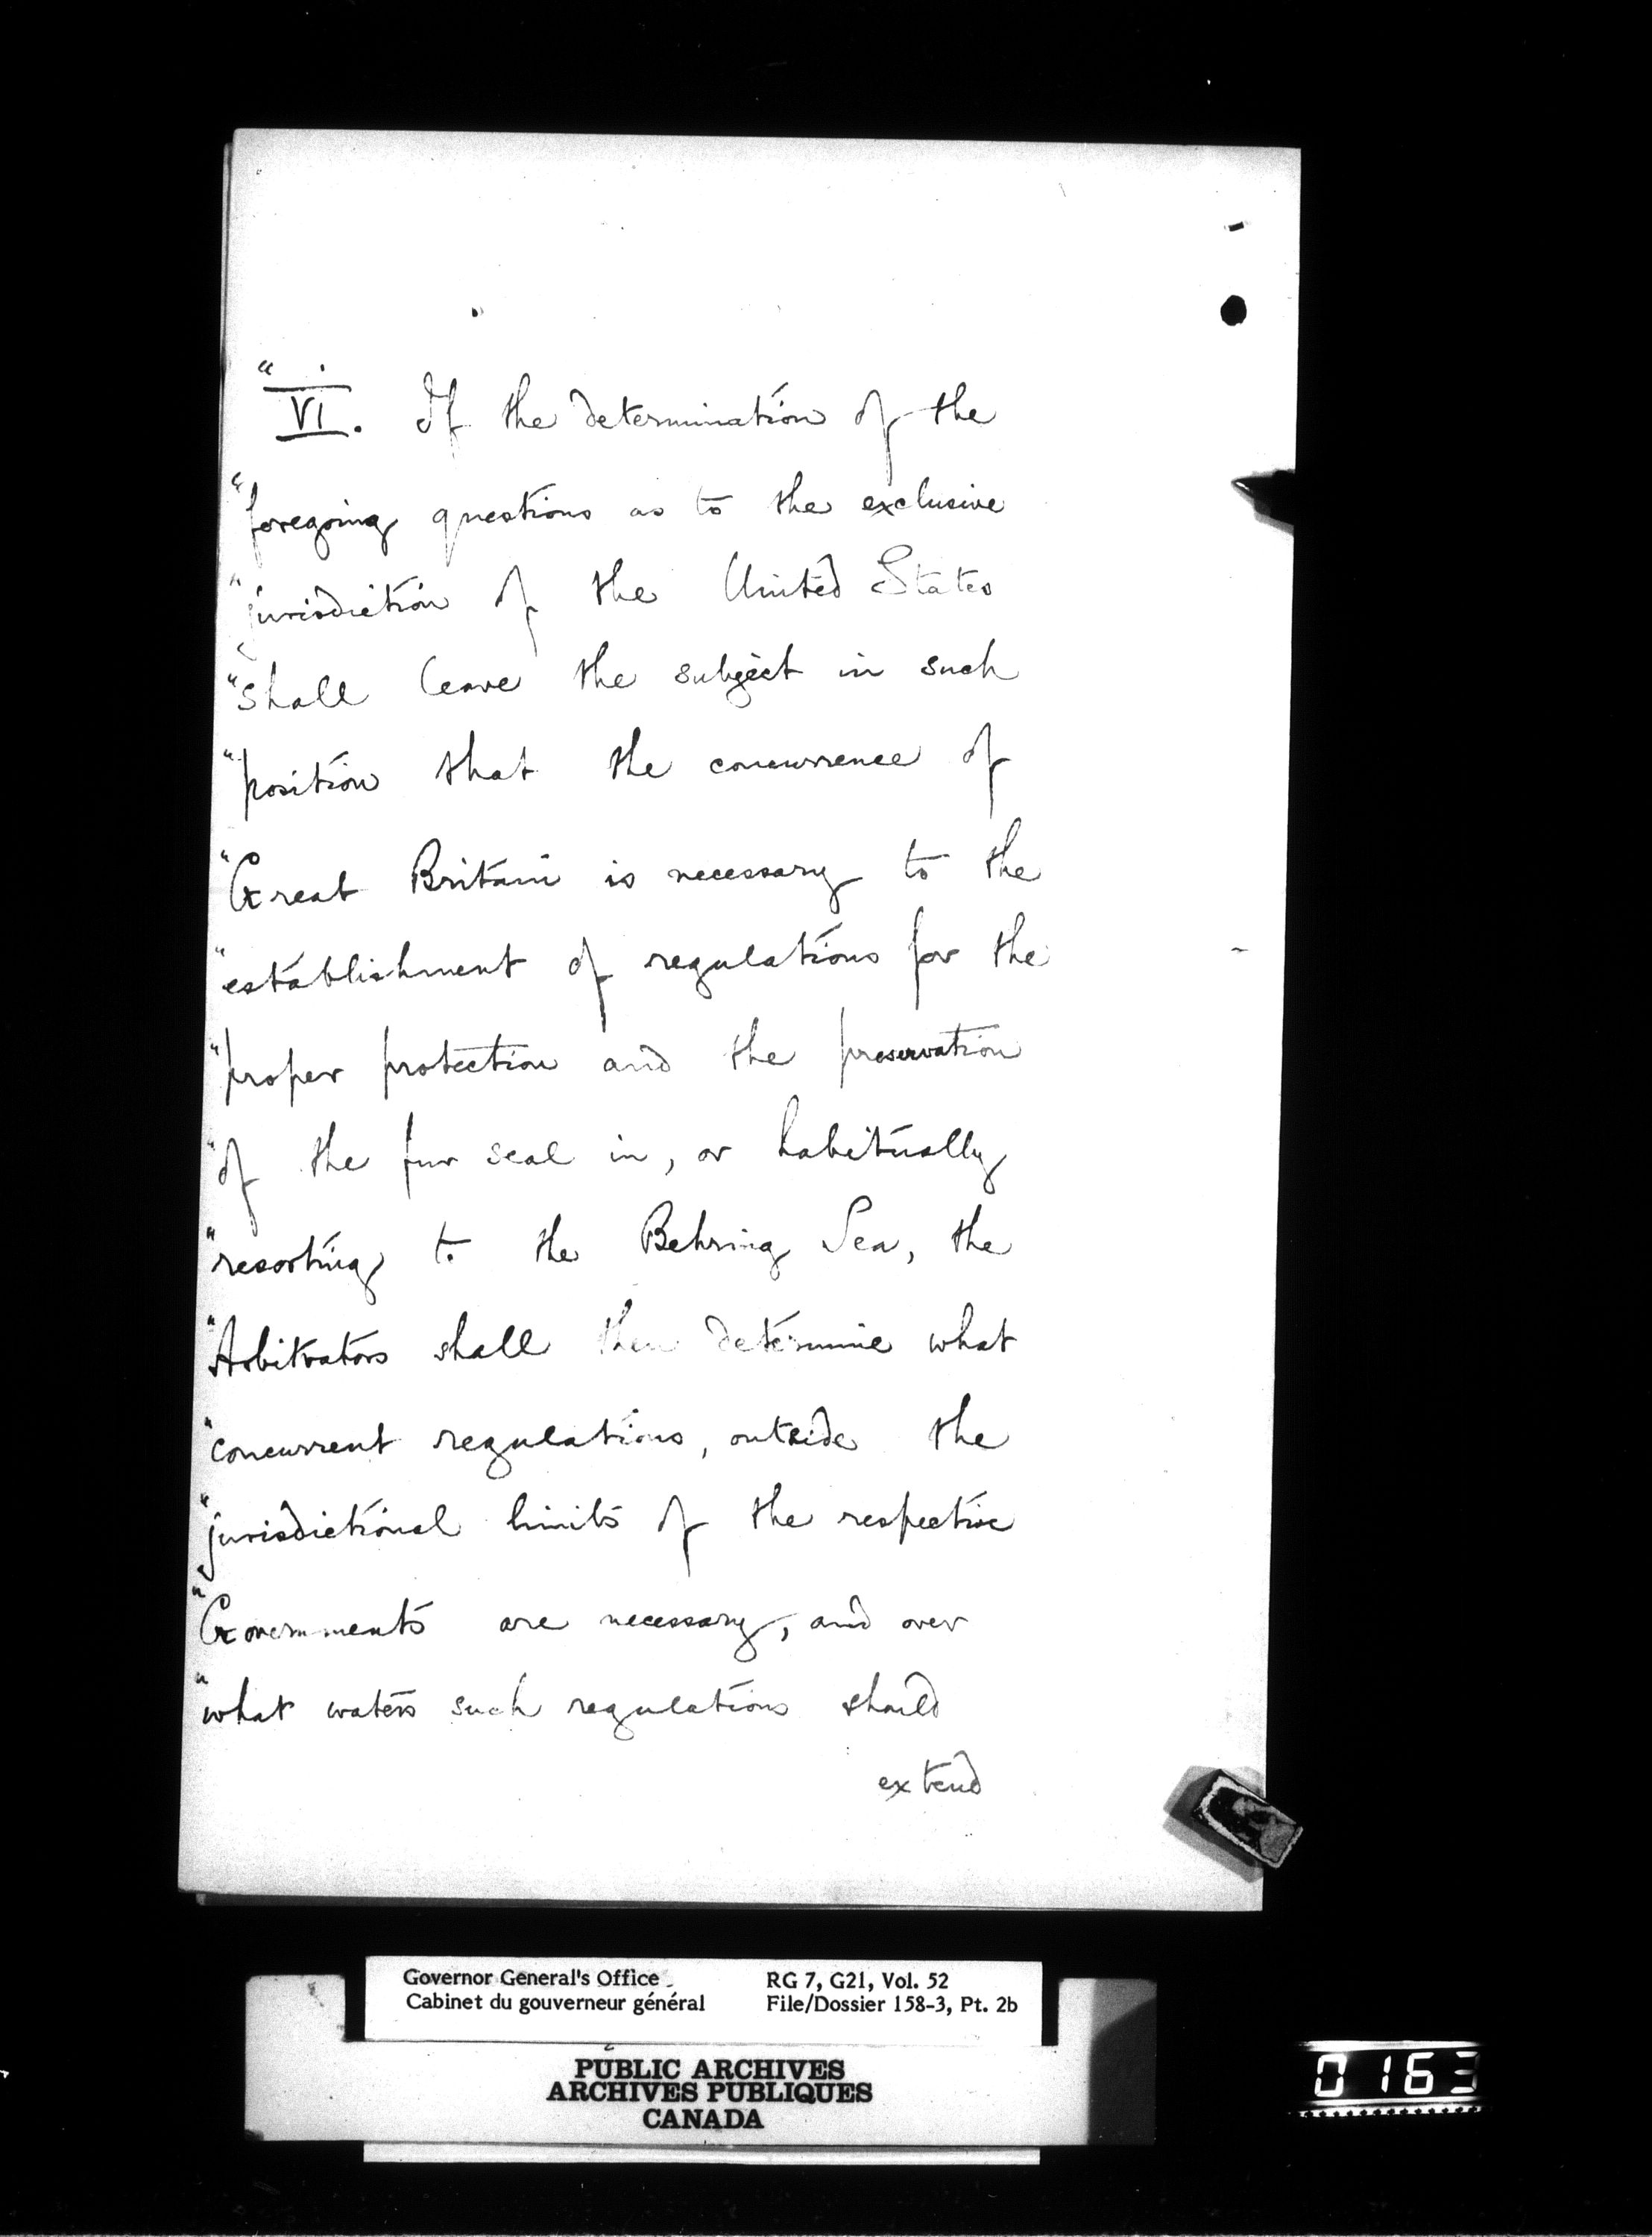 "VI. If the determination of the
"foregoing questions as to the exclusive
"jurisdiction of the United States
"shall leave the subject in such
"position that the concurrence of
"Great Britain is necessary to the
"establishment of regulations for the
"proper protection and the preservation
"of the fur seal in, or habitually
"resorting to the Behring Sea, the
"Arbitrators shall then determine what
"concurrent regulations, outside the
"jurisdictional limits of the respective
"Governments are necessary, and over
"what waters such regulations should
extend
Governor General's Office RG 7, G21, Vol. 52
Cabinet du gouverneur général File/Dossier 158-3, Pt. 2b
PUBLIC ARCHIVES
ARCHIVES PUBLIQUES
CANADA
0163